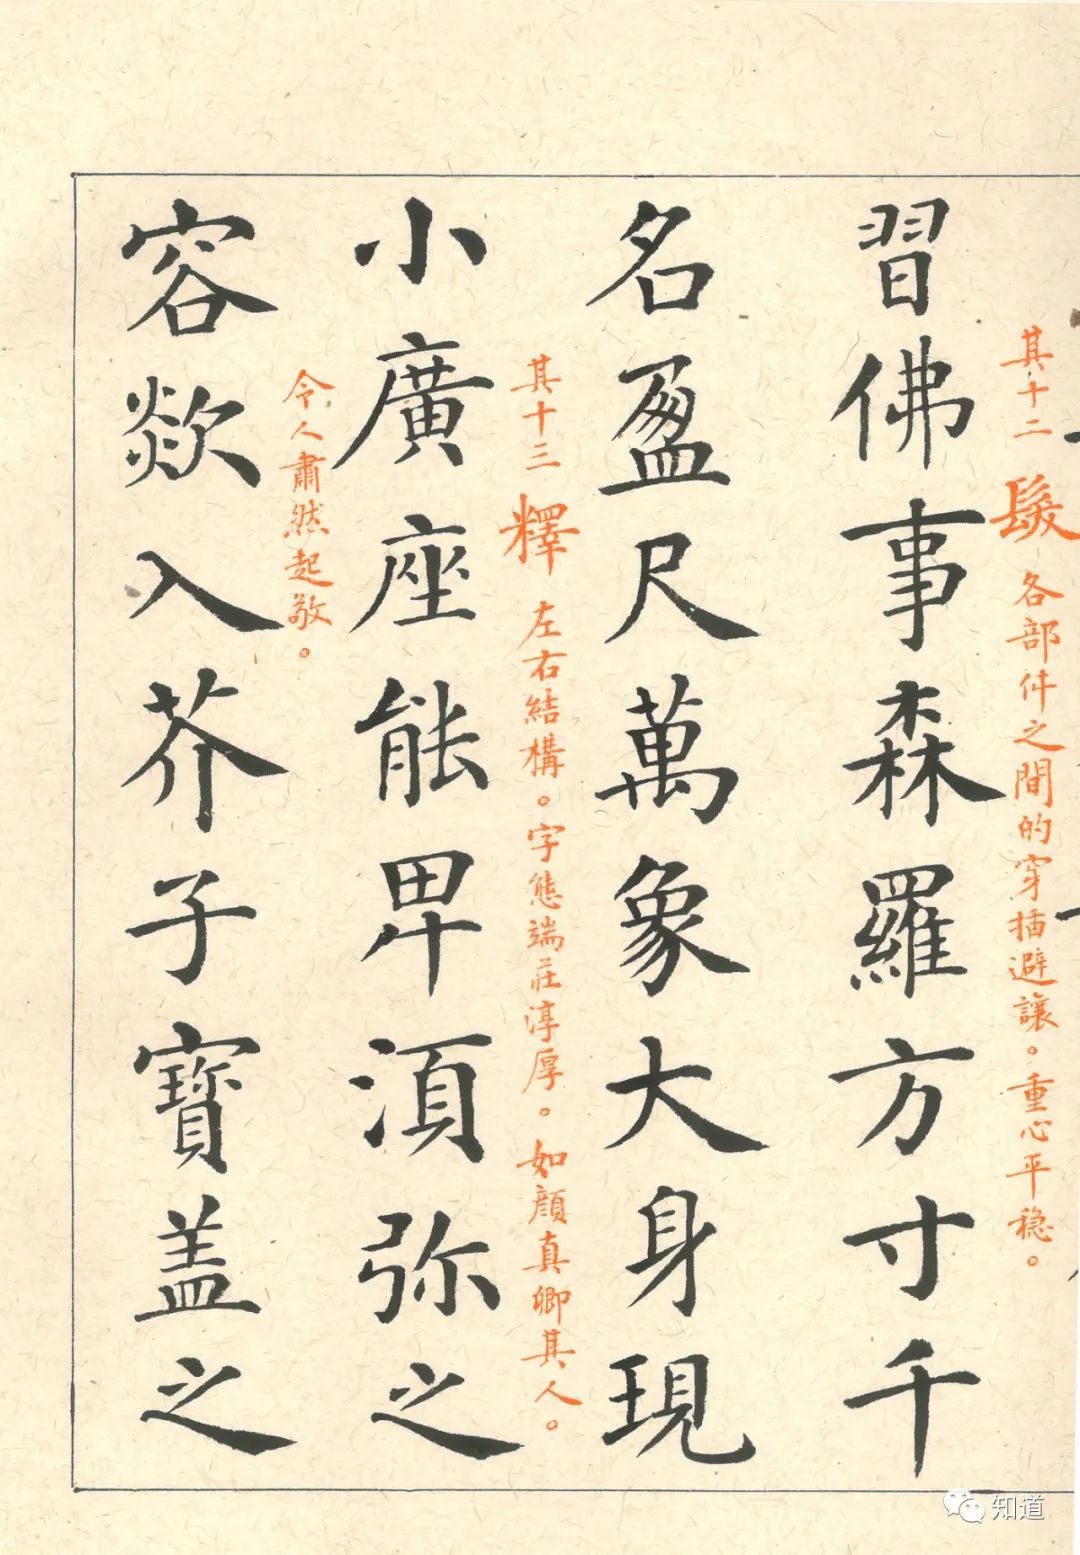 其十二 髮 各部件之間的穿插避讓。重心平稳。
習佛事森羅方寸千
名盈尺萬象大身現
其十三 釋 左右結構。字態端莊淳厚。如顔真卿其人。
小廣座能卑須弥之
令人肅然起敬。
容欻入芥子寶盖之
知道